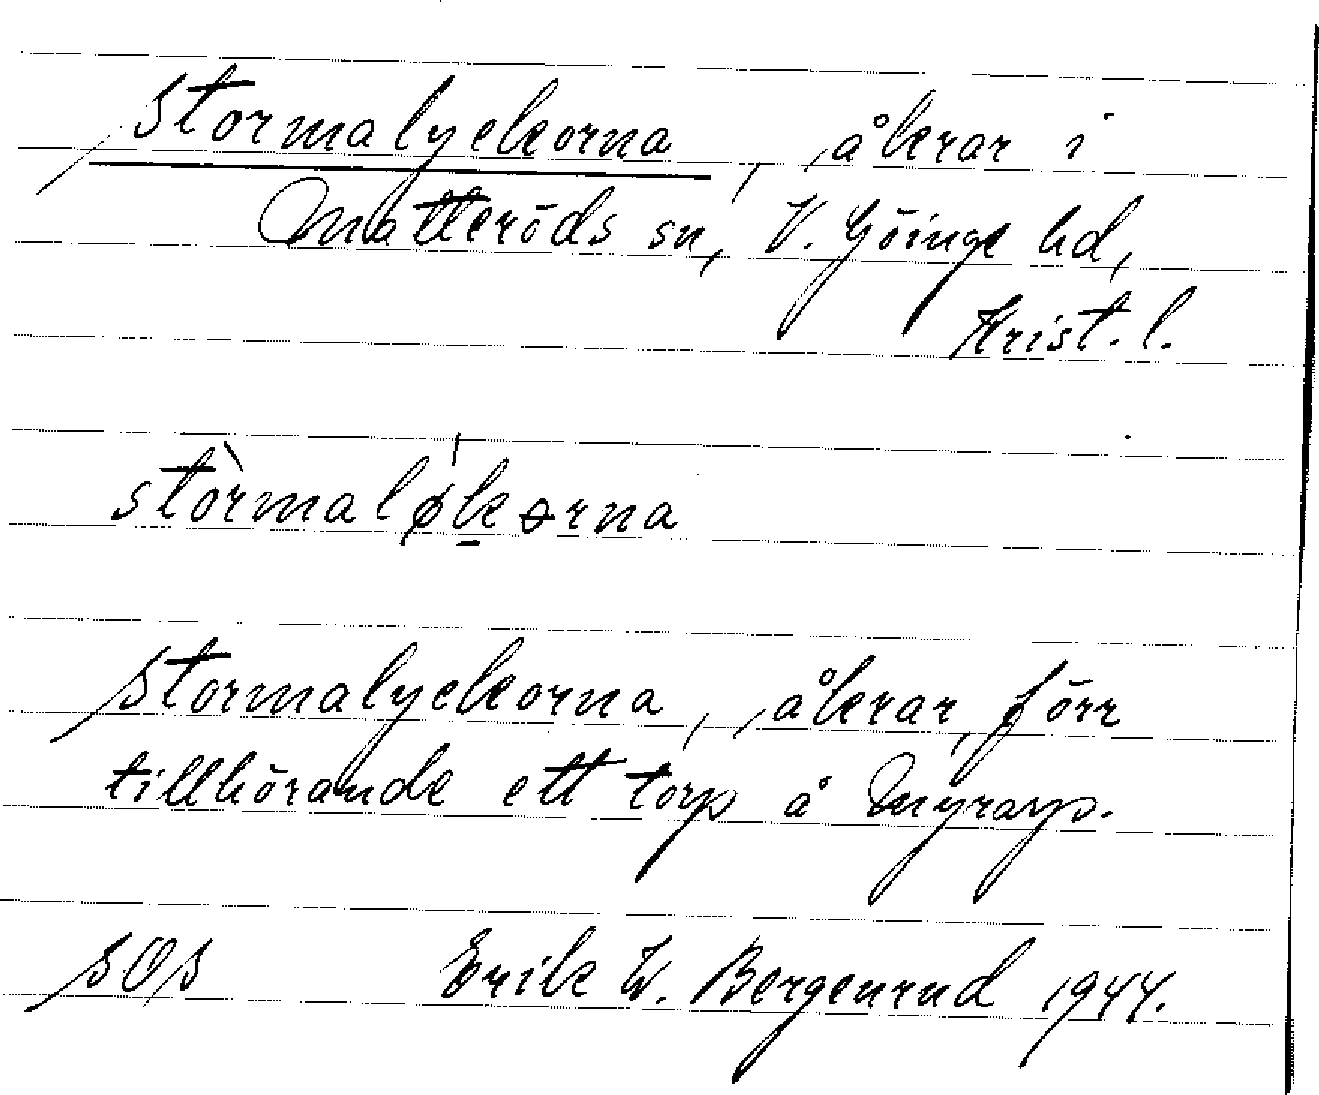 Stormalyckorna, åkrar i
Matteröds sn, V. Göinge hd,
Krist. l.
stòrmaløḱərna
Stormalyckorna, åkrar, förr
tillhörande ett torp å Myrarp.
SOS Erik W. Bergenrud 1944.